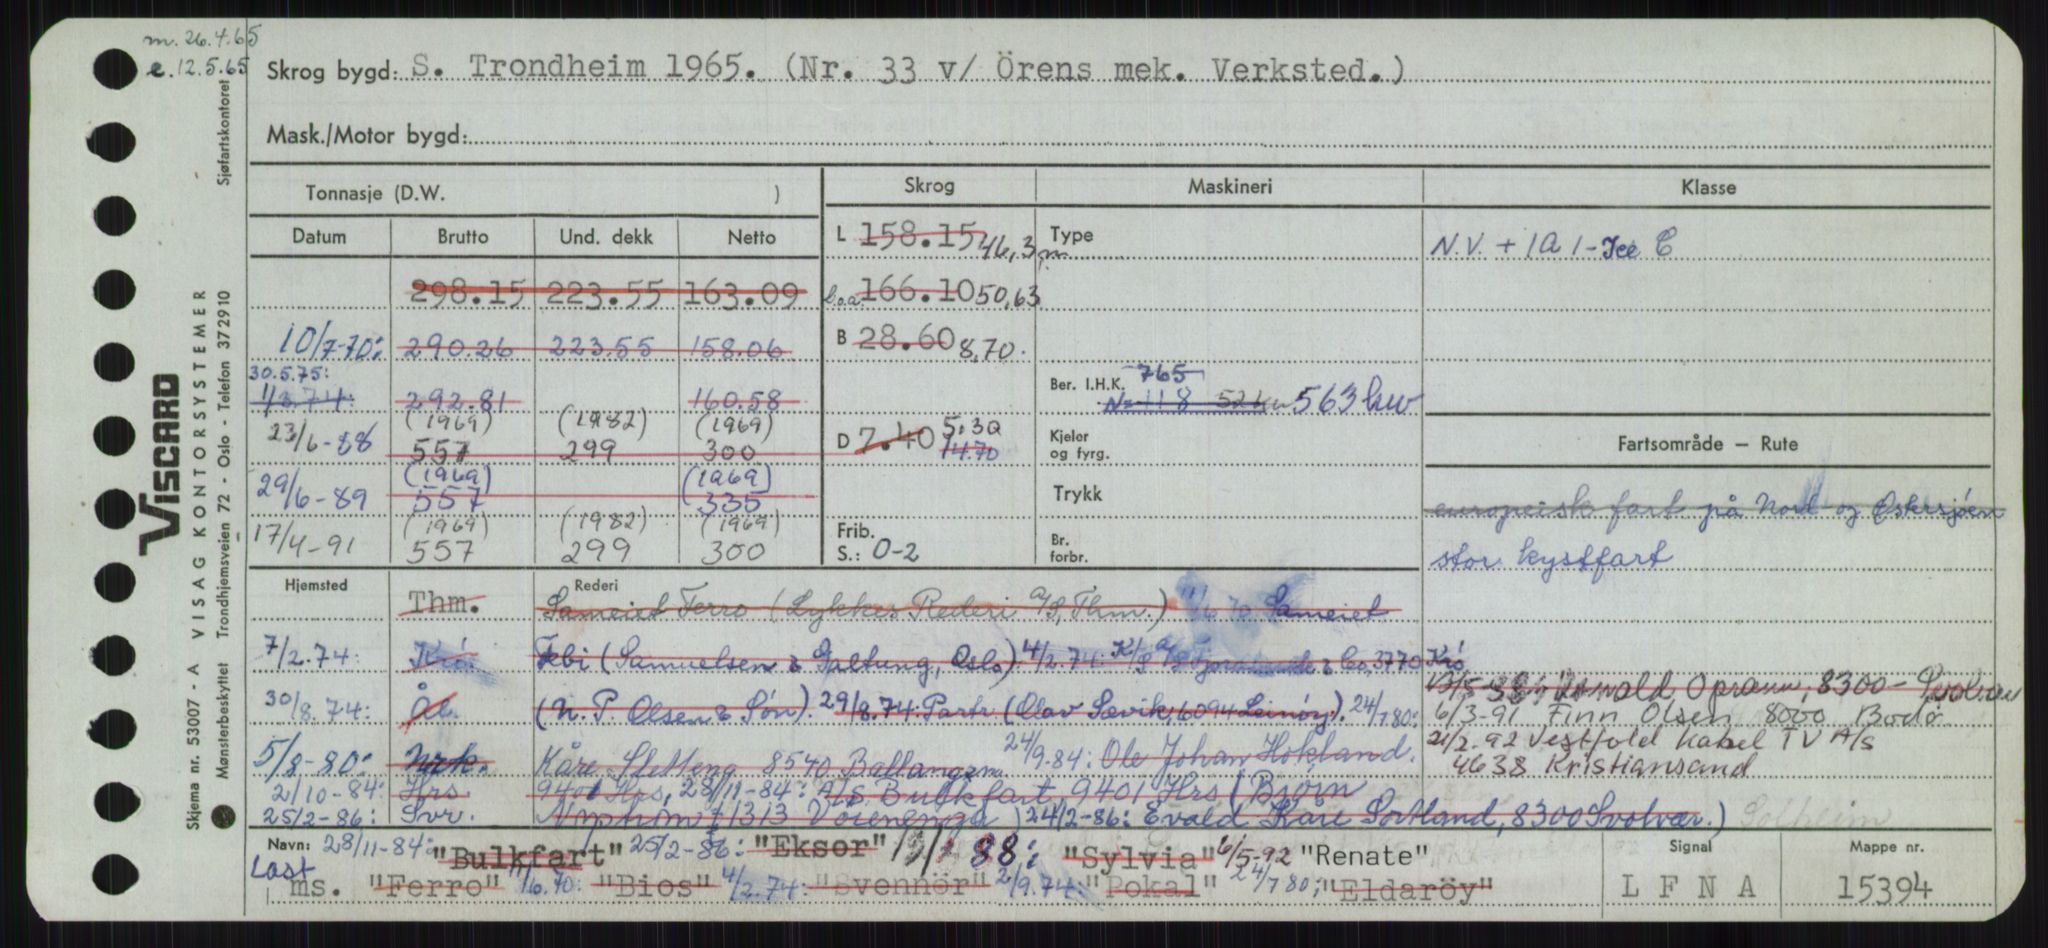 m. 26.4.65
e. 12.5.65
Skrog bygd: S. Trondheim 1965. (Nr. 33 v/ Örens mek. Verksted.)
Mask./Motor bygd:
Sjøfartskontoret
VISCARD
VISAG KONTORSYSTEMER
Trondhjemsveien 72 - Oslo - Telefon 372910
Skjema nr. 53007 - A
Mønsterbeskyttet
Tonnasje (D.W. )
Skrog Maskineri Klasse
Datum Brutto Und. dekk Netto
L 158.15 46,3 m
Type
N.V. + 1A 1 - Ice C
298.15 223.55 163.09
l.o.a. 166.10 50,63
10/7-70: 290.26 223.55 158.06
B 28.60 8,70.
30.5.75:
1/3.74: 292.81 160.58
Ber. I.H.K. 765
N=118 52 563 kw
(1969) (1982) (1969)
23/6-88 557 299 300
D 7.40 5.30
14.70
Kjeler
og fyrg.
Fartsområde — Rute
(1969) (1969)
29/6-89 557 335
Trykk
europeisk fart på Nord og Østersjöen
(1969) (1982) (1969)
17/4-91 557 299 300
Frib.
S.: 0-2
Br.
forbr.
stor kystfart
Hjemsted Rederi
Thm. Sameiet Ferro (Lykkes Rederi A/S, Thm.) 11/6 70 Sameiet
7/2.74: Krö. Febi (Samuelsen & Galtung, Oslo) 4/2.74: K/S A/S & Co, 3770 Krö
13/5-88: Oprann, 8300 - Svolvær
30/8.74: Ål. (N. P. Olsen & Søn). 29/8.74: Partr. (Olav Sævik, 6094 Leinöy). 24/7 80:
6/3-91 Finn Olsen 8000 Bodø
5/8-80: Nrk. Kåre Sletteng 8540 Ballangen 24/9-84: Ole Johan Hokland.
21/2-92 Vestfold Kabel TV A/S
4638 Kristiansand
2/10-84: Hrs. 9401 Hrs, 28/11-84: A/S Bulkfart 9401 Hrs (Bjørn
25/2-86: Svr. 1313 Vöienenga) 24/2-86: Evald Kåre Sortland, 8300 Svolvær.) Solheim
Navn: 28/11-84: "Bulkfart" 25/2-86: "Eksor" 88: "Sylvia" 6/5-92 "Renate"
Signal Mappe nr.
Last
ms. "Ferro" 11/6.70: "Bios" 4/2.74: "Svennör" 2/9.74: "Pokal" 24/7 80: "Eldaröy"
L F N A 15394